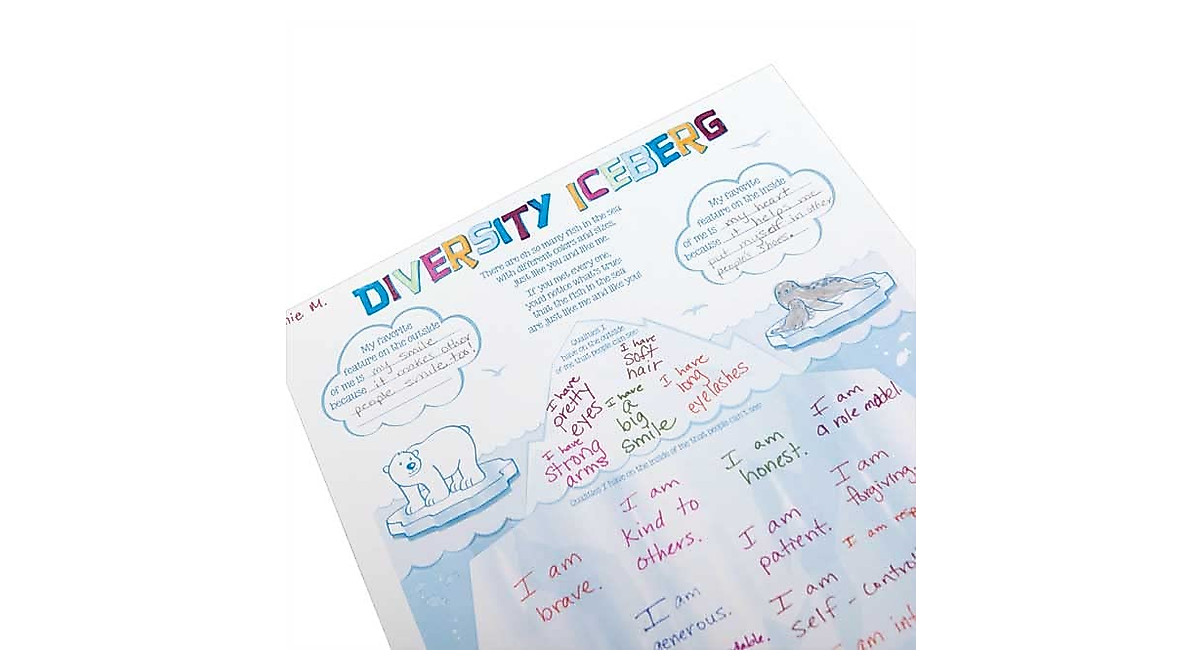 DIVERSITY ICEBERG
nie M.
There are oh so many fish in the sea
with different colors and sizes,
just like you and like me.
If you met every one,
you'd notice what's true:
that the fish in the sea
are just like me and like you!
My favorite
feature on the outside
of me is my smile
because it makes other
people smile too!
My favorite
feature on the inside
of me is my heart
because it helps me
put myself in other
people's shoes.
Qualities I
have on the outside
of me that people can see
I have
soft
hair
I have
pretty
eyes
I have
a
big
smile
I have
long
eyelashes
I have
strong
arms
Qualities I have on the inside of me that people can't see
I am
a role model.
I am
honest.
I am
forgiving.
I am
kind to
others.
I am
patient.
I am resp
I am
brave.
I am
self-control
I am
generous.
dable.
I am int